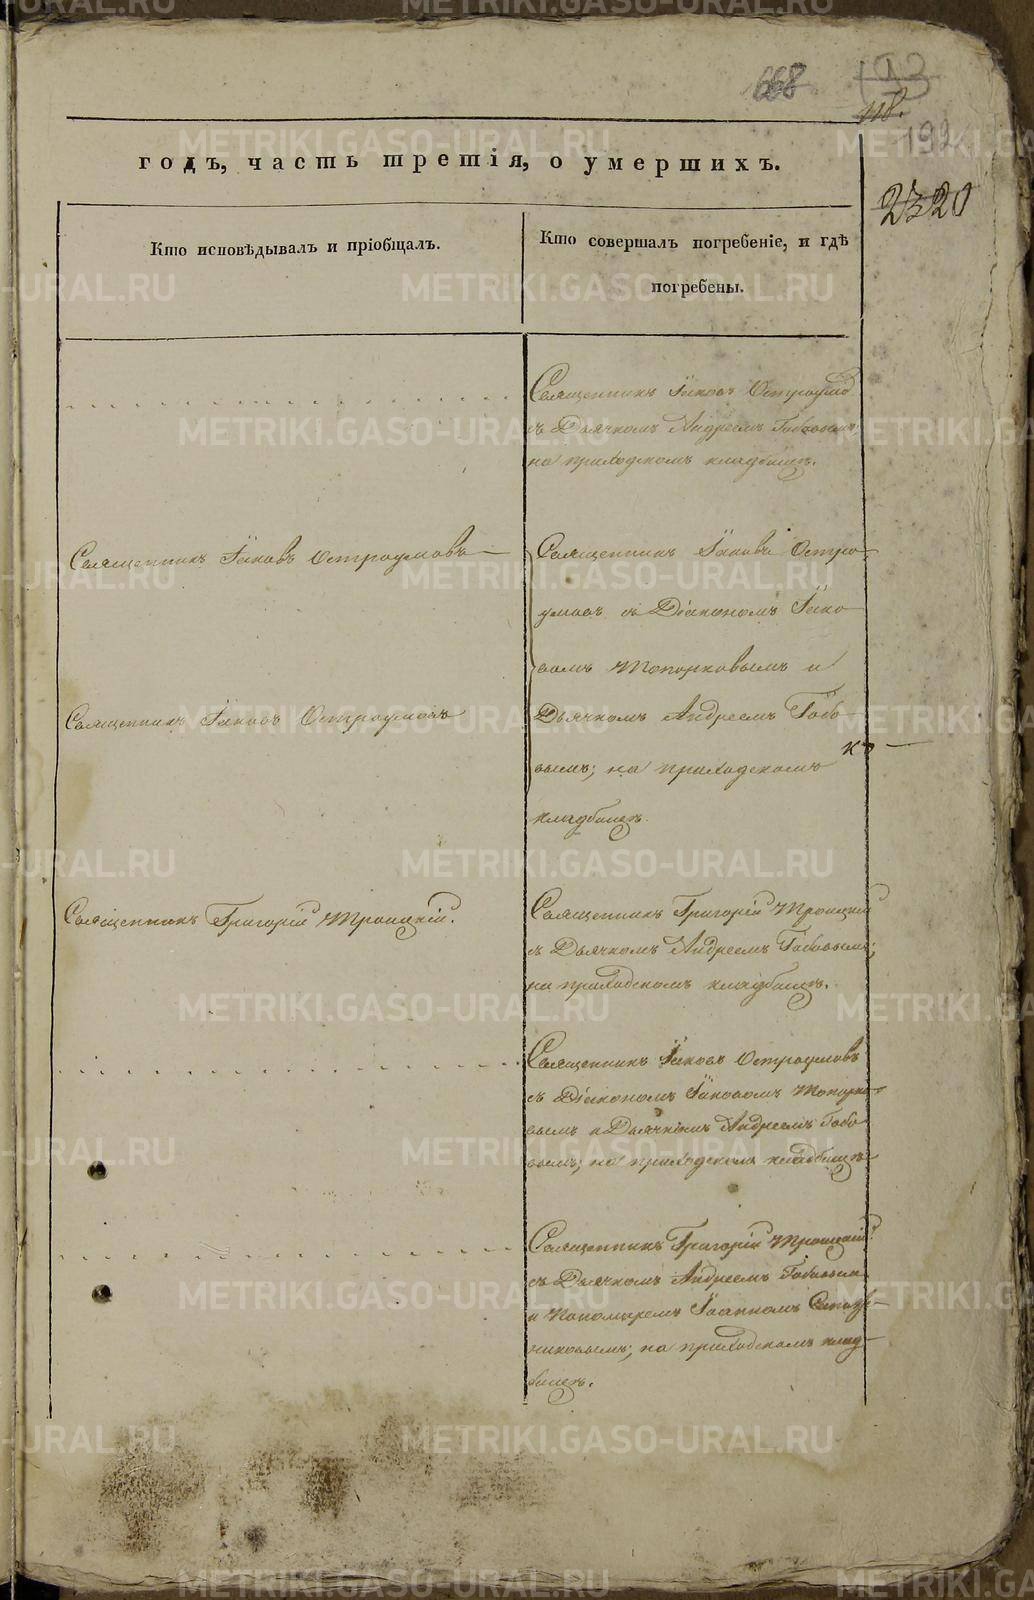 668
193
118.
192
2320
годъ, часть третія, о умершихъ.
Кто исповѣдывалъ и пріобщалъ.
Кто совершалъ погребеніе, и гдѣ
погребены.
Священникъ Іаковъ Остроумов
съ Дьячкомъ Андреемъ Бобовымъ;
на приходскомъ кладбищѣ.
Священникъ Іаковъ Остроумовъ
Священникъ Іаковъ Остро
умовъ съ Діакономъ Іако
вомъ Топорковымъ и
Священникъ Іаковъ Остроумовъ
Дьячкомъ Андреемъ Бобо
вымъ; на приходскомъ
кладбищѣ.
Священникъ Григорій Троицкій.
Священникъ Григорій Троицкій
съ Дьячкомъ Андреемъ Бобовымъ;
на приходскомъ кладбищѣ.
Священникъ Іаковъ Остроумовъ
съ Діакономъ Іаковомъ Топорко
вымъ и Дьячкомъ Андреемъ Бобо
вымъ; на приходскомъ кладбищѣ
Священникъ Григорій Троицкій
съ Дьячкомъ Андреемъ Бобовымъ
и Пономаремъ Іоанномъ
никовымъ; на приходскомъ клад
бищѣ.
METRIKI.GASO-URAL.RU